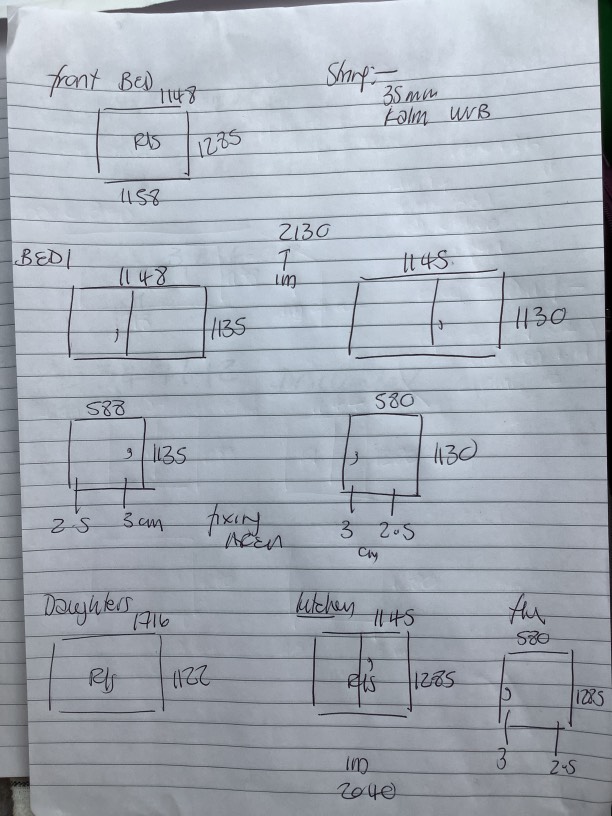 front BED
1148
Rls
1285
1158
35mm
BED 1
2130
1m
1148
1135
1145
1130
588
1135
2.5
3 cm
fixing
AREA
580
1130
3
2.5
cm
Daughters
1716
Rls
1122
kitchen
1145
Rls
1285
1m
2040
580
1285
3
2.5